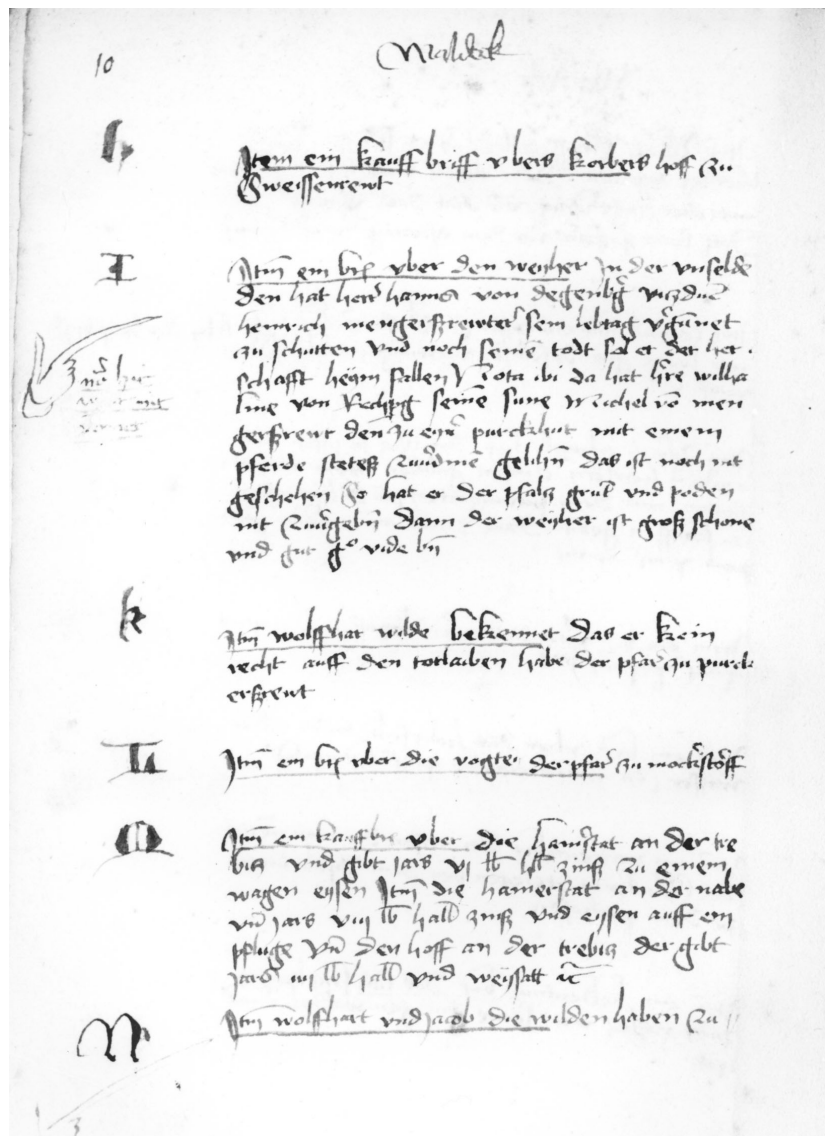 10
Waldek
h
Item ein kauff briff vbers korbers hoff zu
Gweissenrewt
I
Itm ein brf vber den weyher In der vnselde
den hat herr hanns von degenbg viczdue
heinrich mengerszrewter sein lebtag vgunnet
zu schutten vnd noch seine todt sol er der her
schafft heym fallen Nota ibi da hat hre wilha
lme von Rechpg seine sune Michel vo men
gerszrewt den zu eyn purckhut mit einem
pferde stetesz zuuerdine gelihn das ist noch nit
geschehen So hat er der pfalcz grut vnd poden
nit zuuergebn dann der weyher ist grosz schone
vnd gut go vide bn
k
Itm wolffhat wilde bekennet das er kein
recht auff den totlaiben habe der pfar zu purck
erszrewt
L
Itm ein brf vber die vogtei der pfar zu mockstorff
M
Itm ein kauffbrf vber die hamstat an der tre
bis vnd gibt jars vj lb hll zinsz zu einem
wagen eysen Itm die hamerstat an der nabe
vn jars viij lb hall zinsz vnd eysen auff ein
pfluge vn den hoff an der trebis der gibt
jars iiij lb hall vnd weyssatt
N
Itm wolffhart vnd jacob die wilden haben zu
3